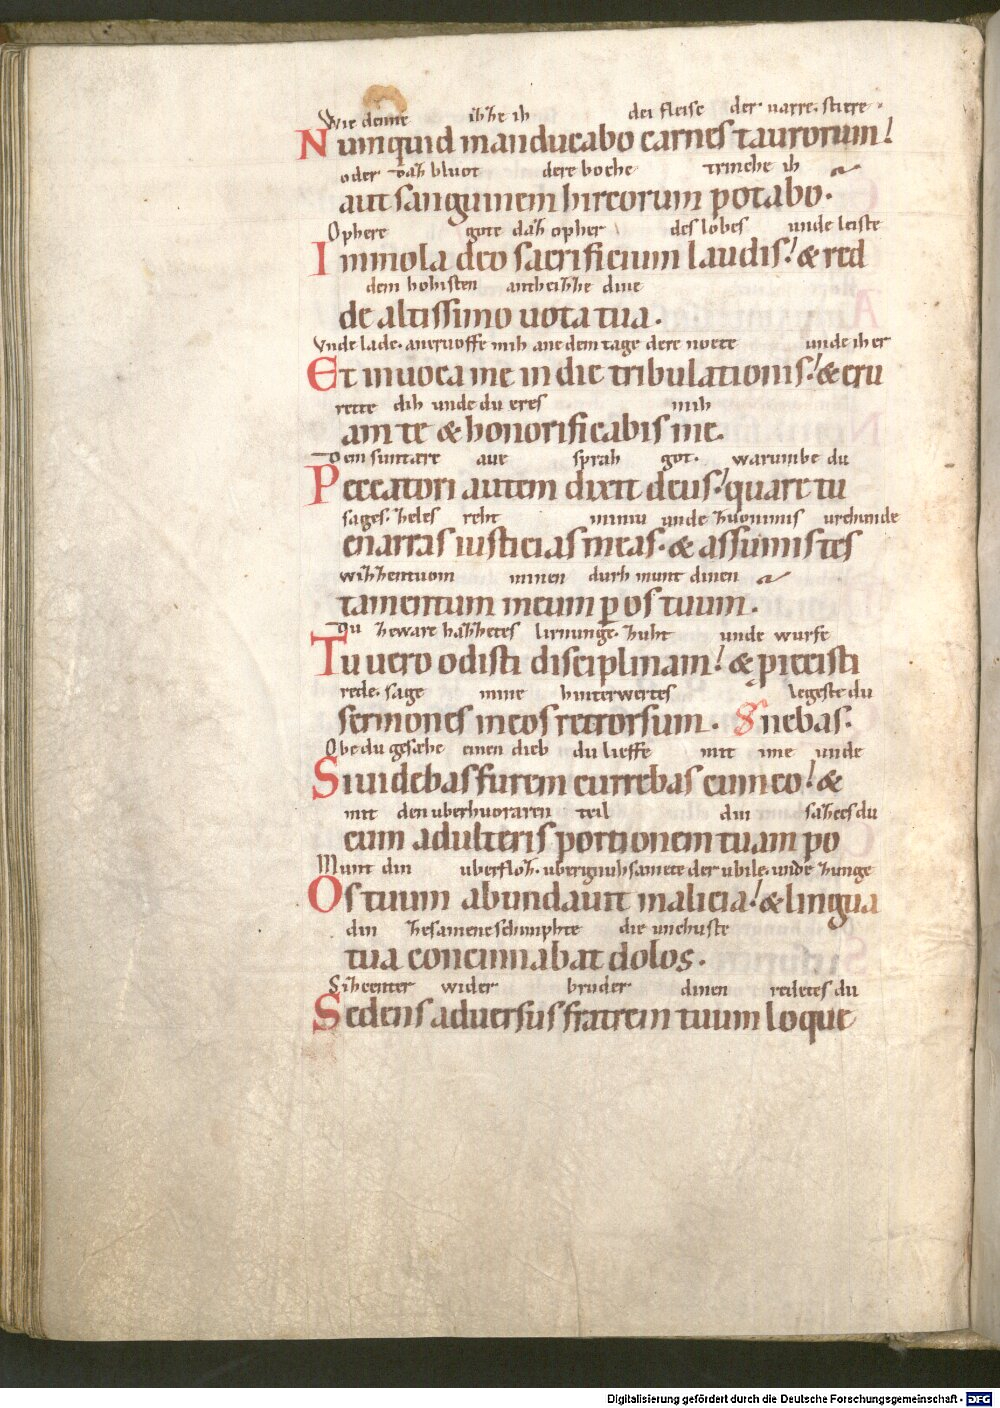 Wie denne ihhe ih dei fleisc der uarre. stiere.
Numquid manducabo carnes taurorum!
oder dah bluot dere boche trinche ih
aut sanguinem hircorum potabo.
Ophere gote dah opher des lobes unde leiste
Immola deo sacrificium laudis! & red
dem hohisten antheihhe dine
de altissimo uota tua.
Vnde lade. aneruoffe mih ane dem tage dere noete unde ih er
Et inuoca me in die tribulationis! & eru
rette dih unde du eres mih
am te & honorificabis me.
Dem suntare aue sprah got. warumbe du
Peccatori autem dixit deus! quare tu
sages. zeles reht miniu unde zuonimis urchunde
enarras iusticias meas. & assumis tes
wihhentuom minen durh munt dinen
tamentum meum p os tuum.
Du zeware hahhetes lirnunge. zuht unde wurfe
Tu uero odisti disciplinam! & piecisti
rede. sage mine hinterwertes legeste du
sermones meos retrorsum. S nebas.
Obe du gesæhe einen dieb du lieffe mit ime unde
Si uidebas furem currebas cum eo! &
mit den uberhuoraren teil din sahees du
cum adulteris portionem tuam po
Munt din uberfloh. uberignuhsamete der ubile. unde zunge
Os tuum abundauit malicia! & lingua
din zesamene schimphte die unchuste
tua concinnabat dolos.
Sihcenter wider bruder dinen redetes du
Sedens aduersus fratrem tuum loque
Digitalisierung gefördert durch die Deutsche Forschungsgemeinschaft - DFG